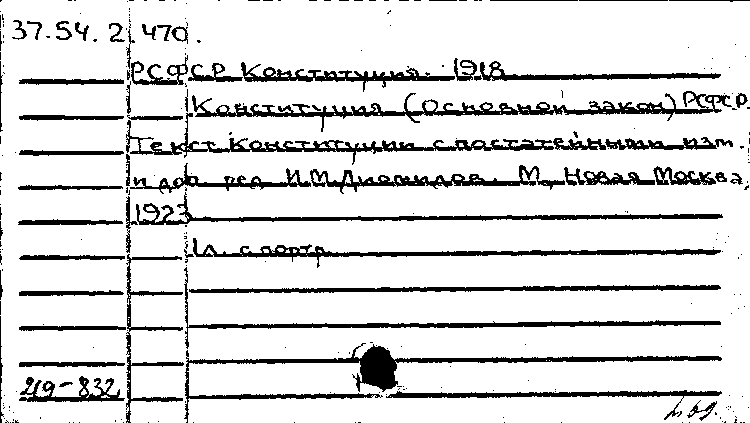 37.54.2.470.
РСФСР Конституция. 1918
Конституция (Основной закон) РСФСР.
Текст Конституции с постатейными изм.
и доп ред И.М.Диомидов. М, Новая Москва,
1923
1л. с портр
219-832